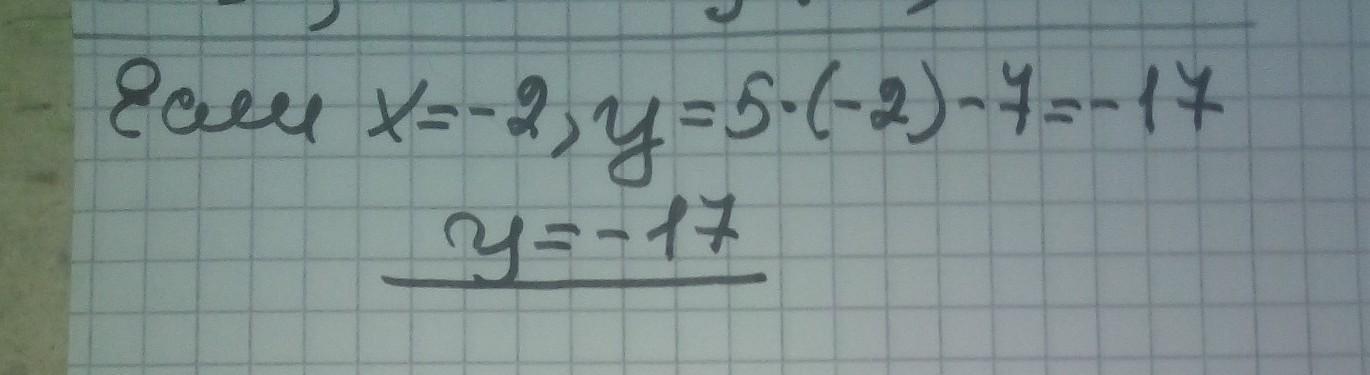 Если x=-2, y=5·(-2)-7=-17
y=-17